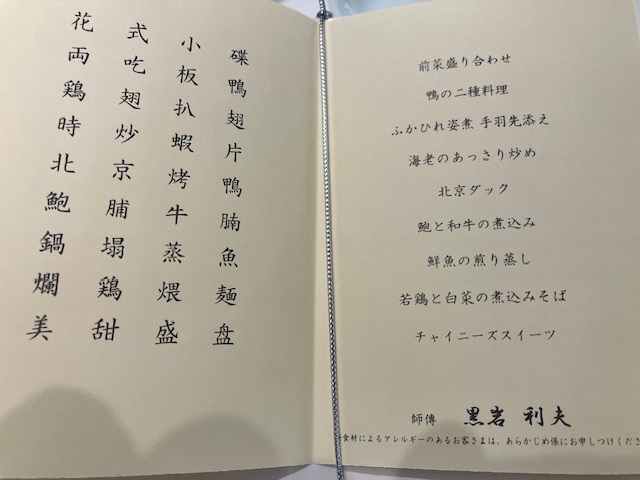 花式小碟
両吃板鴨
鶏翅扒翅
時炒蝦片
北京烤鴨
鮑脯牛腩
鍋塌蒸魚
爛鶏煨麵
美甜盛盘
前菜盛り合わせ
鴨の二種料理
ふかひれ姿煮 手羽先添え
海老のあっさり炒め
北京ダック
鮑と和牛の煮込み
鮮魚の煎り蒸し
若鶏と白菜の煮込みそば
チャイニーズスイーツ
師傅 黒岩 利夫
食材によるアレルギーのあるお客さまは、あらかじめ係にお申しつけくださ